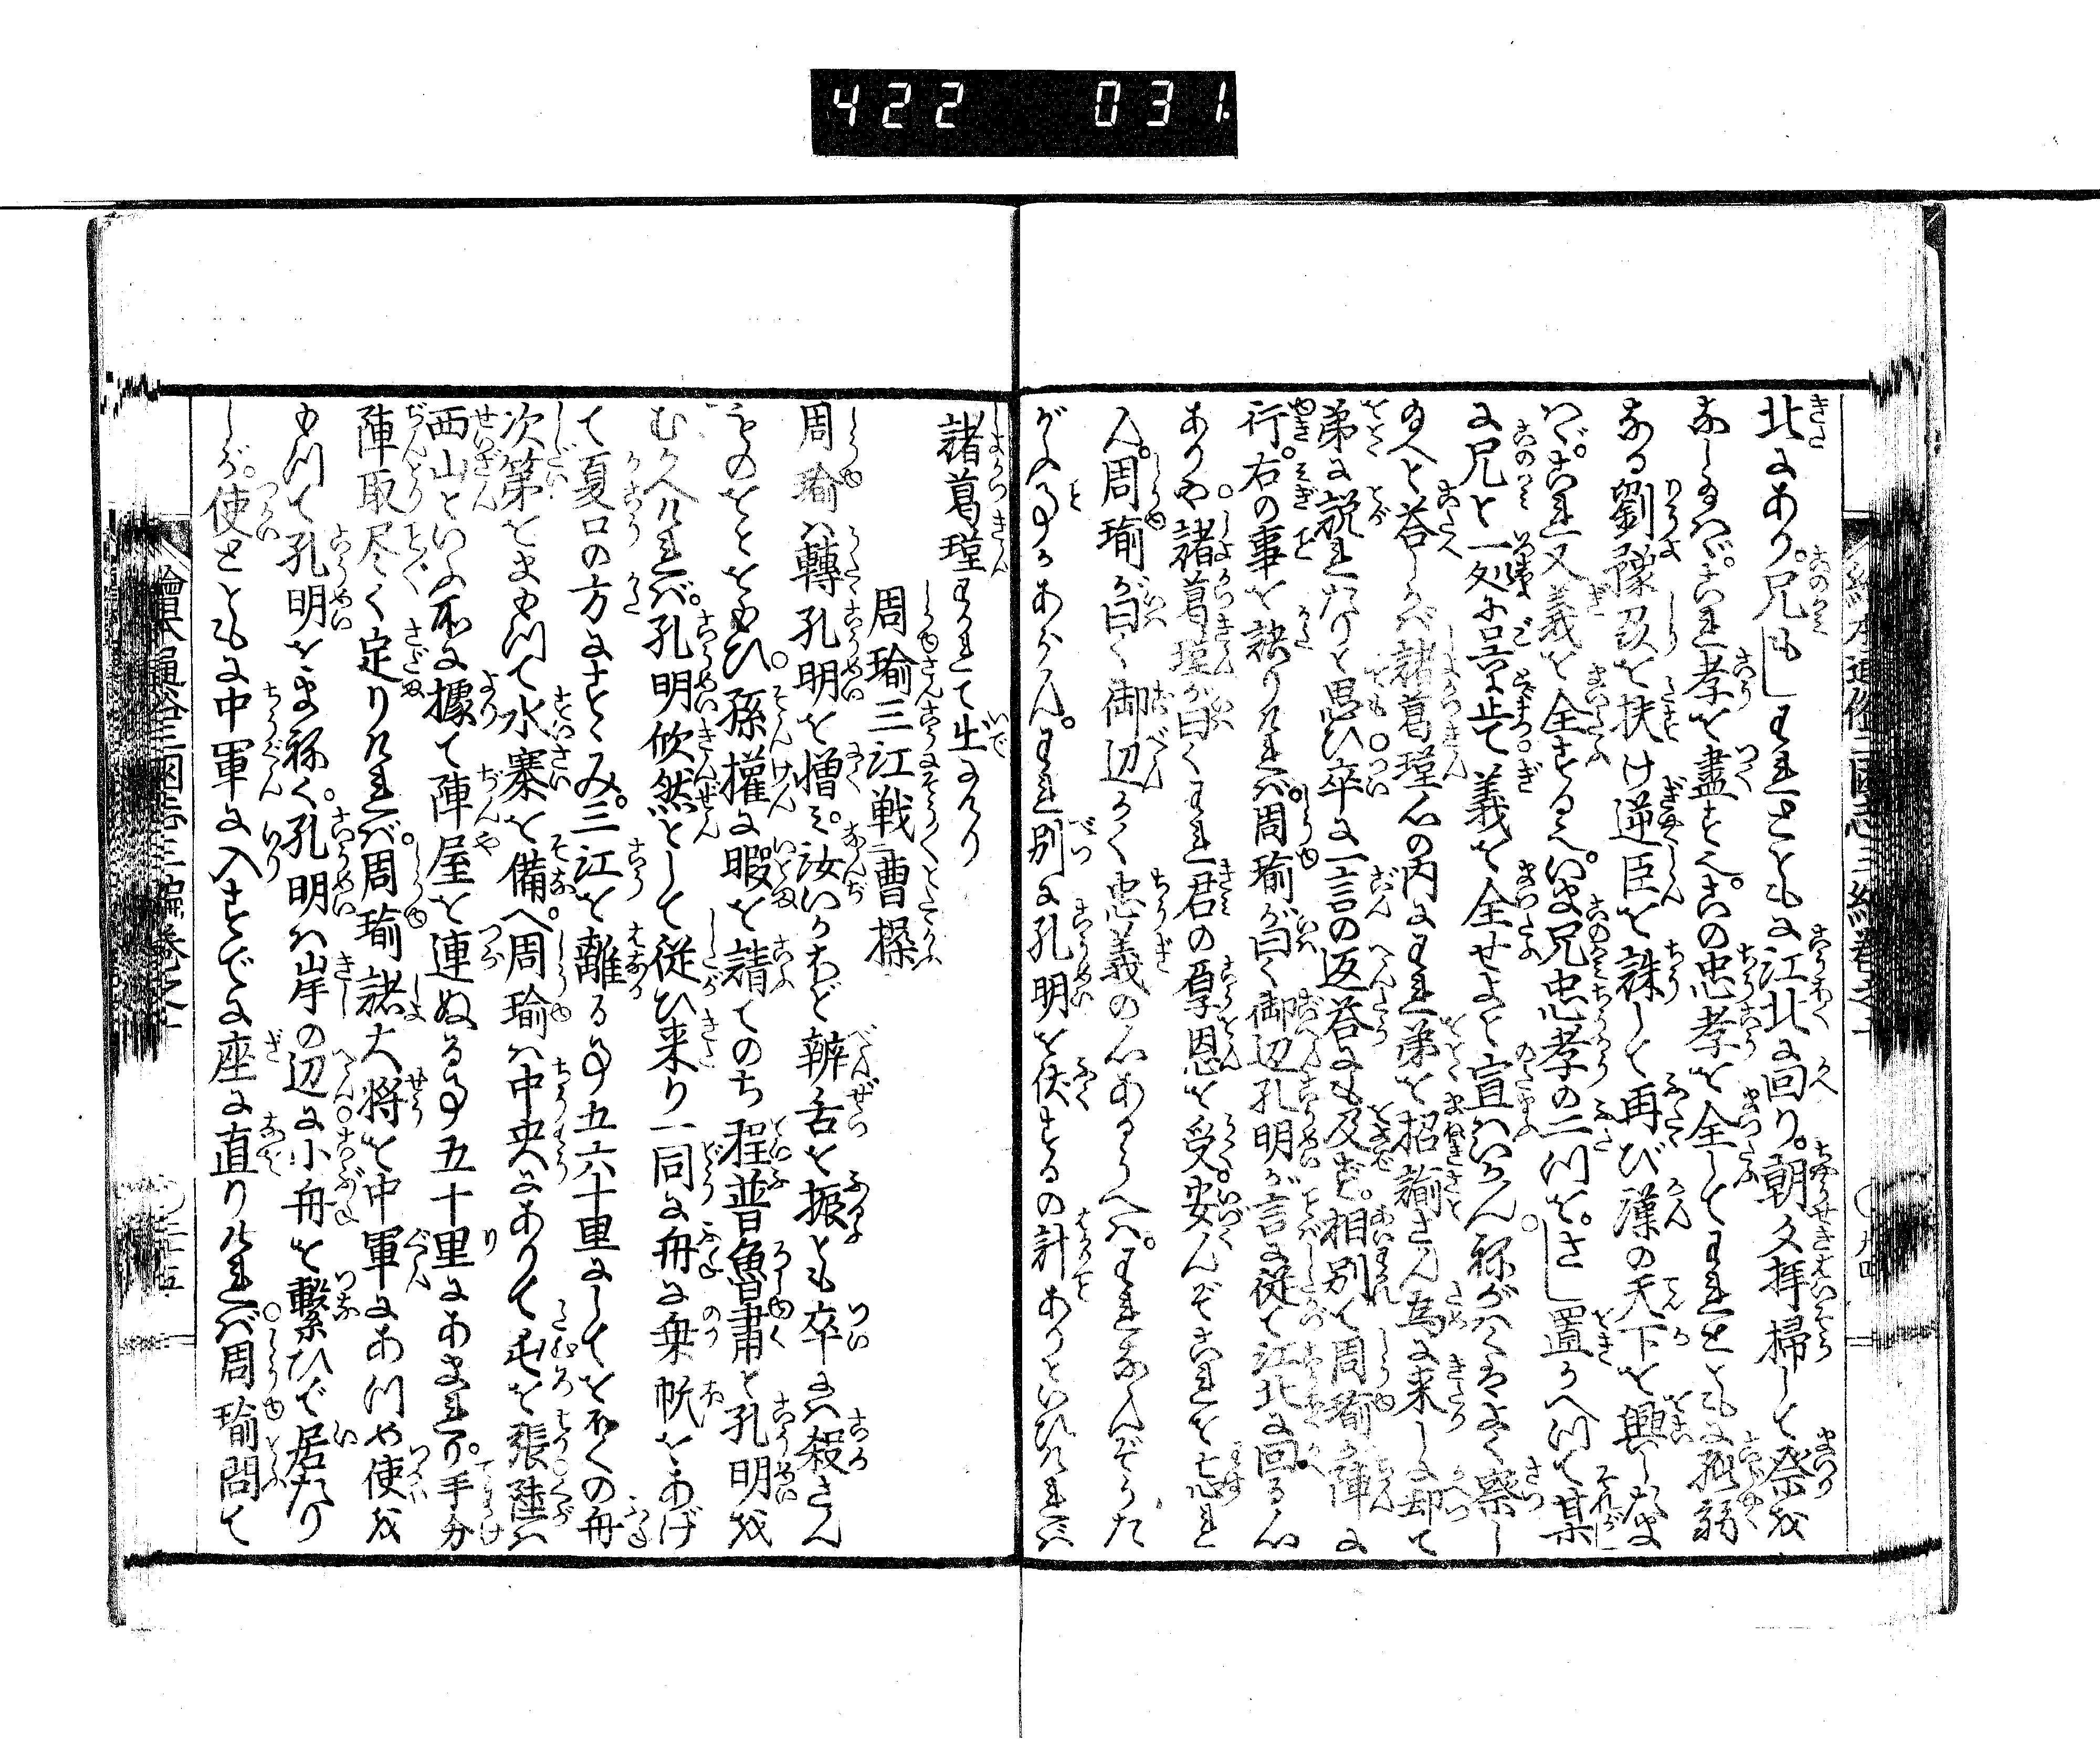 422 031
北にあり。兄もしわれとともに江北に回り。朝夕拝掃して祭を
なし給はゞ。これ孝を盡すなり。この忠孝を全してわれとともに孤弱
なる劉豫州を扶け逆臣を誅して再び漢の天下を興したま
はゞ。これ又義を全するなり。いま兄忠孝の二つを。さし置かへつて某
に兄と一処に止て義を全せよと宣はいかん。ねがはくはよく察し
給へと答しかば諸葛瑾心の内にわれ弟を招諭さん為に来しに却て
弟に説れたりと思ひ卒に一言の返答にも及ばず。相別て周瑜が陣に
行。右の事を訣りければ。周瑜が曰く御辺孔明が言に従て江北に回る心
ありや諸葛瑾が曰くわれ君の厚恩を受。安んぞこれを忘れ
ん。周瑜が曰く御辺かく忠義の心あるうへは。われなんぞうた
がふ事かあらん。われ別に孔明を伏するの計ありといひければ
諸葛瑾わかれて出にけり
周瑜三江戦曹操
周瑜は轉孔明を憎み。汝いかほど辨舌を振とも卒には殺さん
ものをとおもひ。孫權に暇を請てのち程普魯肅と孔明を
むかへければ。孔明欣然として従ひ来り一同に舟に乗帆をあげ
て夏口の方にすゝみ。三江を離るゝ事五六十里にしておほくの舟
次第をまもつて水寨を備へ。周瑜は中央にありて屯を張陸は
西山といふ所に據て陣屋を連ぬる事五十里にあまれり。手分
陣取尽く定りければ。周瑜諸大将を中軍にあつめ使を
もつて孔明をまねく。孔明は岸の辺に小舟を繋ひで居たり
しが。使とともに中軍に入すでに座に直りければ周瑜問て